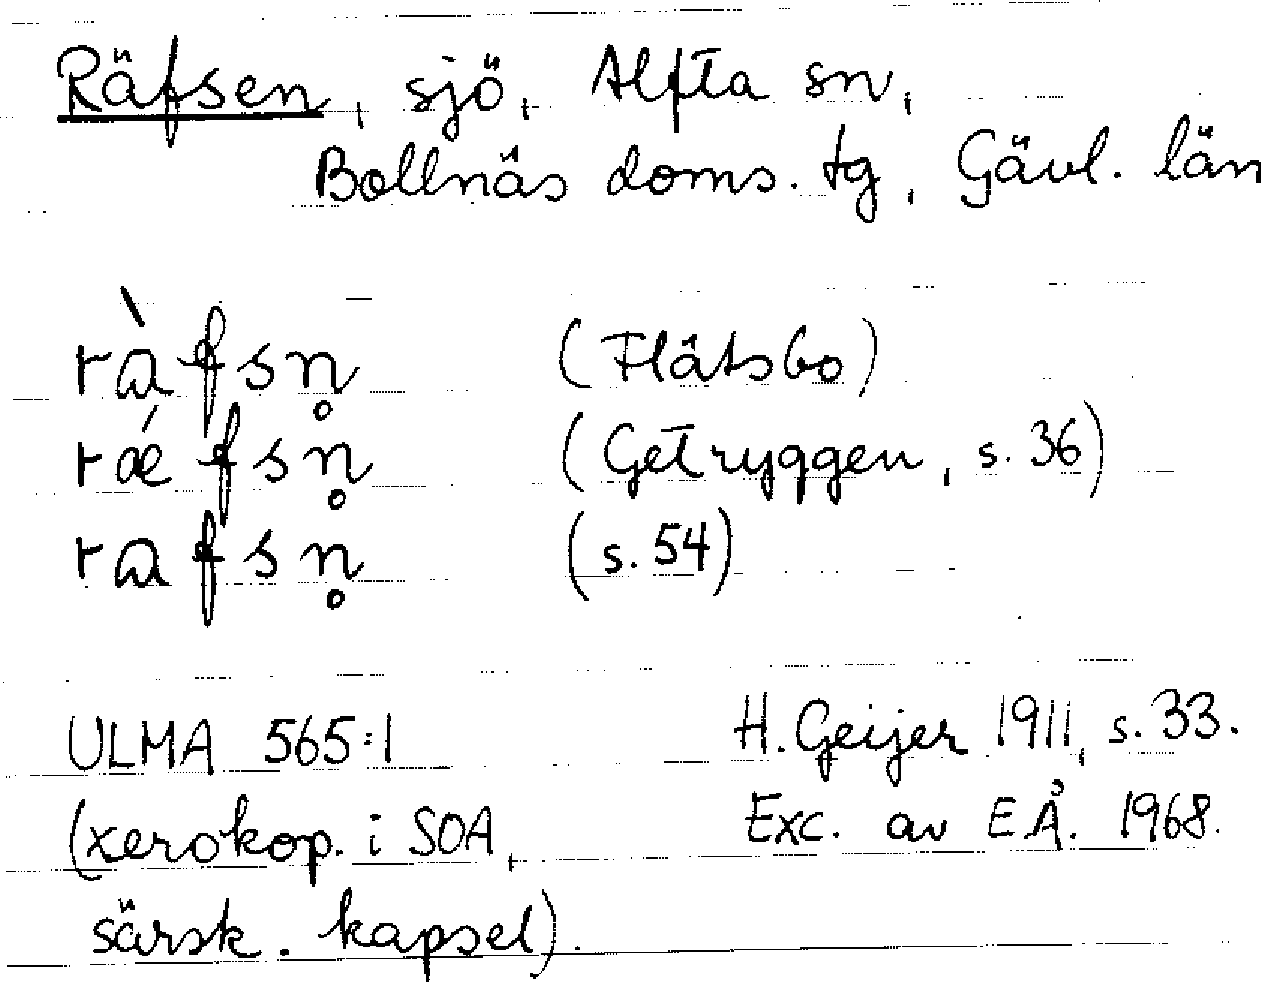 Räfsen, sjö, Alfta sn,
Bollnäs doms. tg, Gävl. län
ràfsn̥ (Flätsbo)
rǽfsn̥ (Getryggen, s. 36)
rafsn̥ (s. 54)
ULMA 565:1 H. Geijer 1911, s. 33.
(xerokop. i SOA, Exc. av E Å. 1968.
särsk. kapsel).